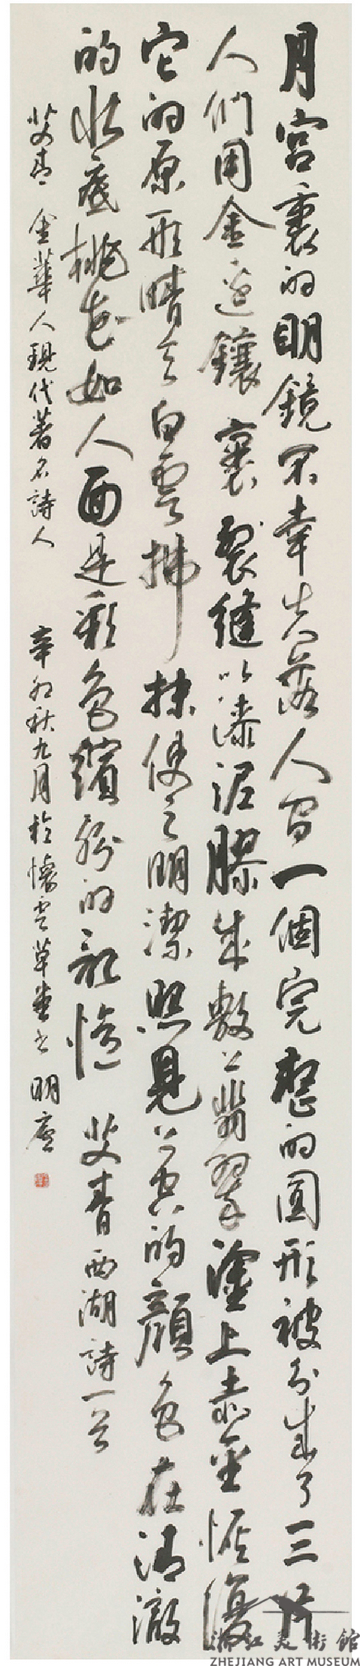 月宮裏的明鏡不幸失落人間一個完整的圓形被分成了三片
人們用金邊鑲裹裂縫以漆泥膠成敷以翡翠塗上赤金恢復
它的原形晴天白雲拂抹使之明潔照見上空的顏色在清澈
的水底桃花如人面是彩色繽紛的記憶 艾青西湖詩一首
艾青 金華人現代著名詩人 辛卯秋九月於懷雲草堂 明廬
浙江美術館
ZHEJIANG ART MUSEUM